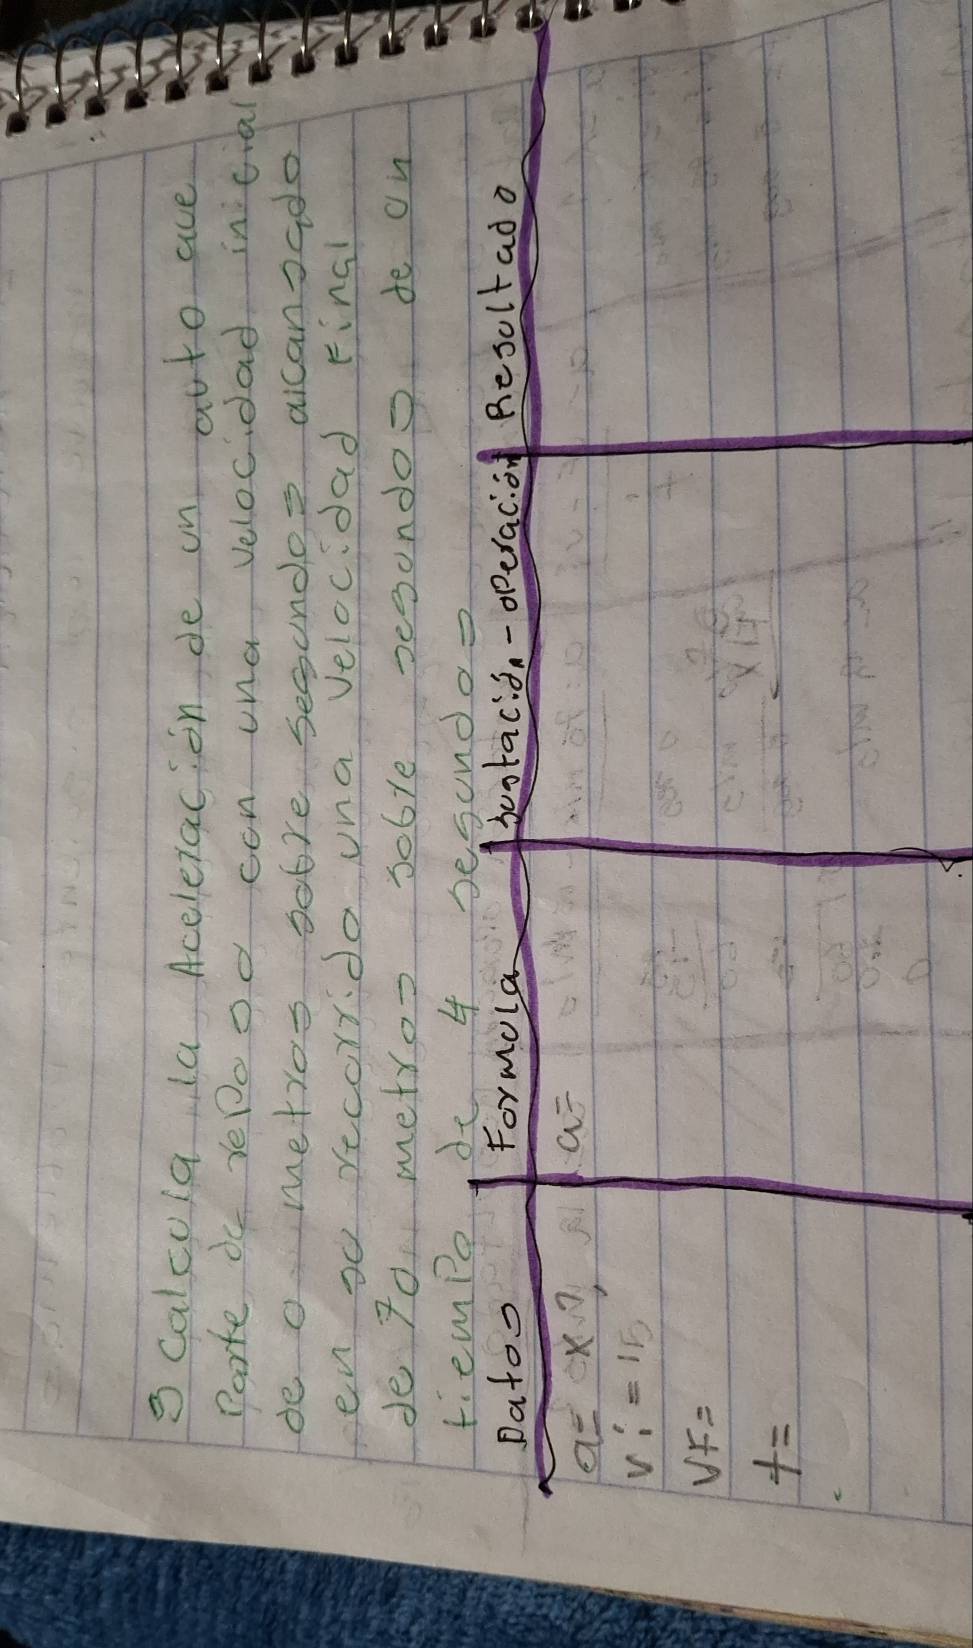 3 Calcula la Aceleración de un auto que
Parte de reposo con una velocidad inicial
de 0 metros sobre segundos alcansado
en su recorrido una velocidad Final
de 70 metros sobre segundos de un
tiempo de 4 segundos
Datos Formula Sustación-operación Resultado
a= a=
Vi = 15
VF=
t=